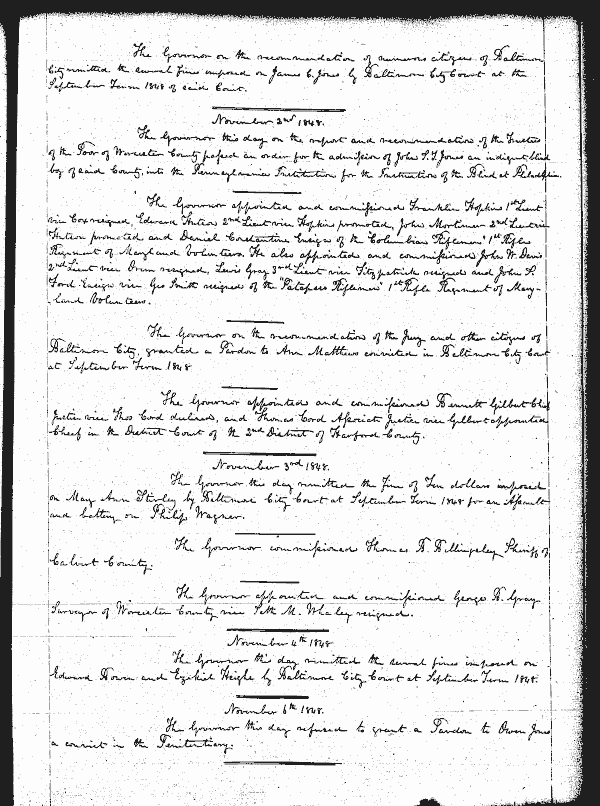 The Governor on the recommendation of numerous citizens of Baltimore
City remitted the several fines imposed on James C. Jones by Baltimore City Court at the
September Term 1848 of said Court.
November 2nd 1848.
The Governor this day on the report and recommendation of the Trustees
of the Poor of Worcester County passed an order for the admission of John S. T. Jones an indigent blind
boy of said County, into the Pennsylvania Institution for the Instruction of the Blind at Philadelphia.
The Governor appointed and commissioned Franklin Hopkins 1st Lieut
vice Cox resigned, Edward 2nd Lieut vice Hopkins promoted, John Mortimer 2nd Lieut vice
promoted and Daniel Constantine Ensign of the "Columbian Riflemen" 1st Rifle
Regiment of Maryland Volunteers. He also appointed and commissioned John W. Davis
2nd Lieut vice resigned, Lewis Gray 3rd Lieut vice Fitzpatrick resigned and John S.
Ford Ensign vice Geo Smith resigned of the "Patapsco Riflemen" 1st Rifle Regiment of Mary-
land Volunteers.
The Governor on the recommendation of the Jury and other citizens of
Baltimore City, granted a Pardon to Ann Matthews convicted in Baltimore City Court
at September Term 1848.
The Governor appointed and commissioned Bennett Gilbert Chief
Justice vice Thos Cord declined, and Thomas Cord Associate Justice vice Gilbert appointed
Cheef in the District Court of the 2nd District of Harford County.
November 3rd 1848.
The Governor this day remitted the fine of Ten dollars imposed
on Mary Ann Stirley by Baltimore City Court at September Term 1848 for an Assault
and battery on Philip Wagner.
The Governor commissioned Thomas B. Billingsley Sheriff of
Calvert County.
The Governor appointed and commissioned George H. Gray
Surveyor of Worcester County vice Seth M. Whaley resigned.
November 4th 1848
The Governor this day remitted the several fines imposed on
Edward and Ezekiel by Baltimore City Court at September Term 1848.
November 6th 1848.
The Governor this day refused to grant a Pardon to Owen Jones
a convict in the Penitentiary.